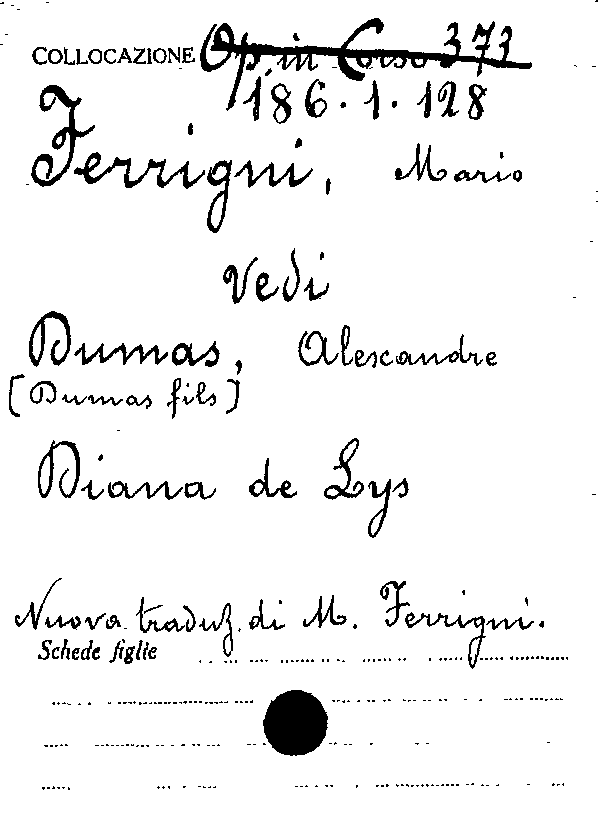 COLLOCAZIONE Op. in Corso 373
186.1.128
Ferrigni, Mario
Vedi
Dumas, Alexandre
[Dumas fils]
Diana de Lys
Nuova traduz. di M. Ferrigni.
Schede figlie